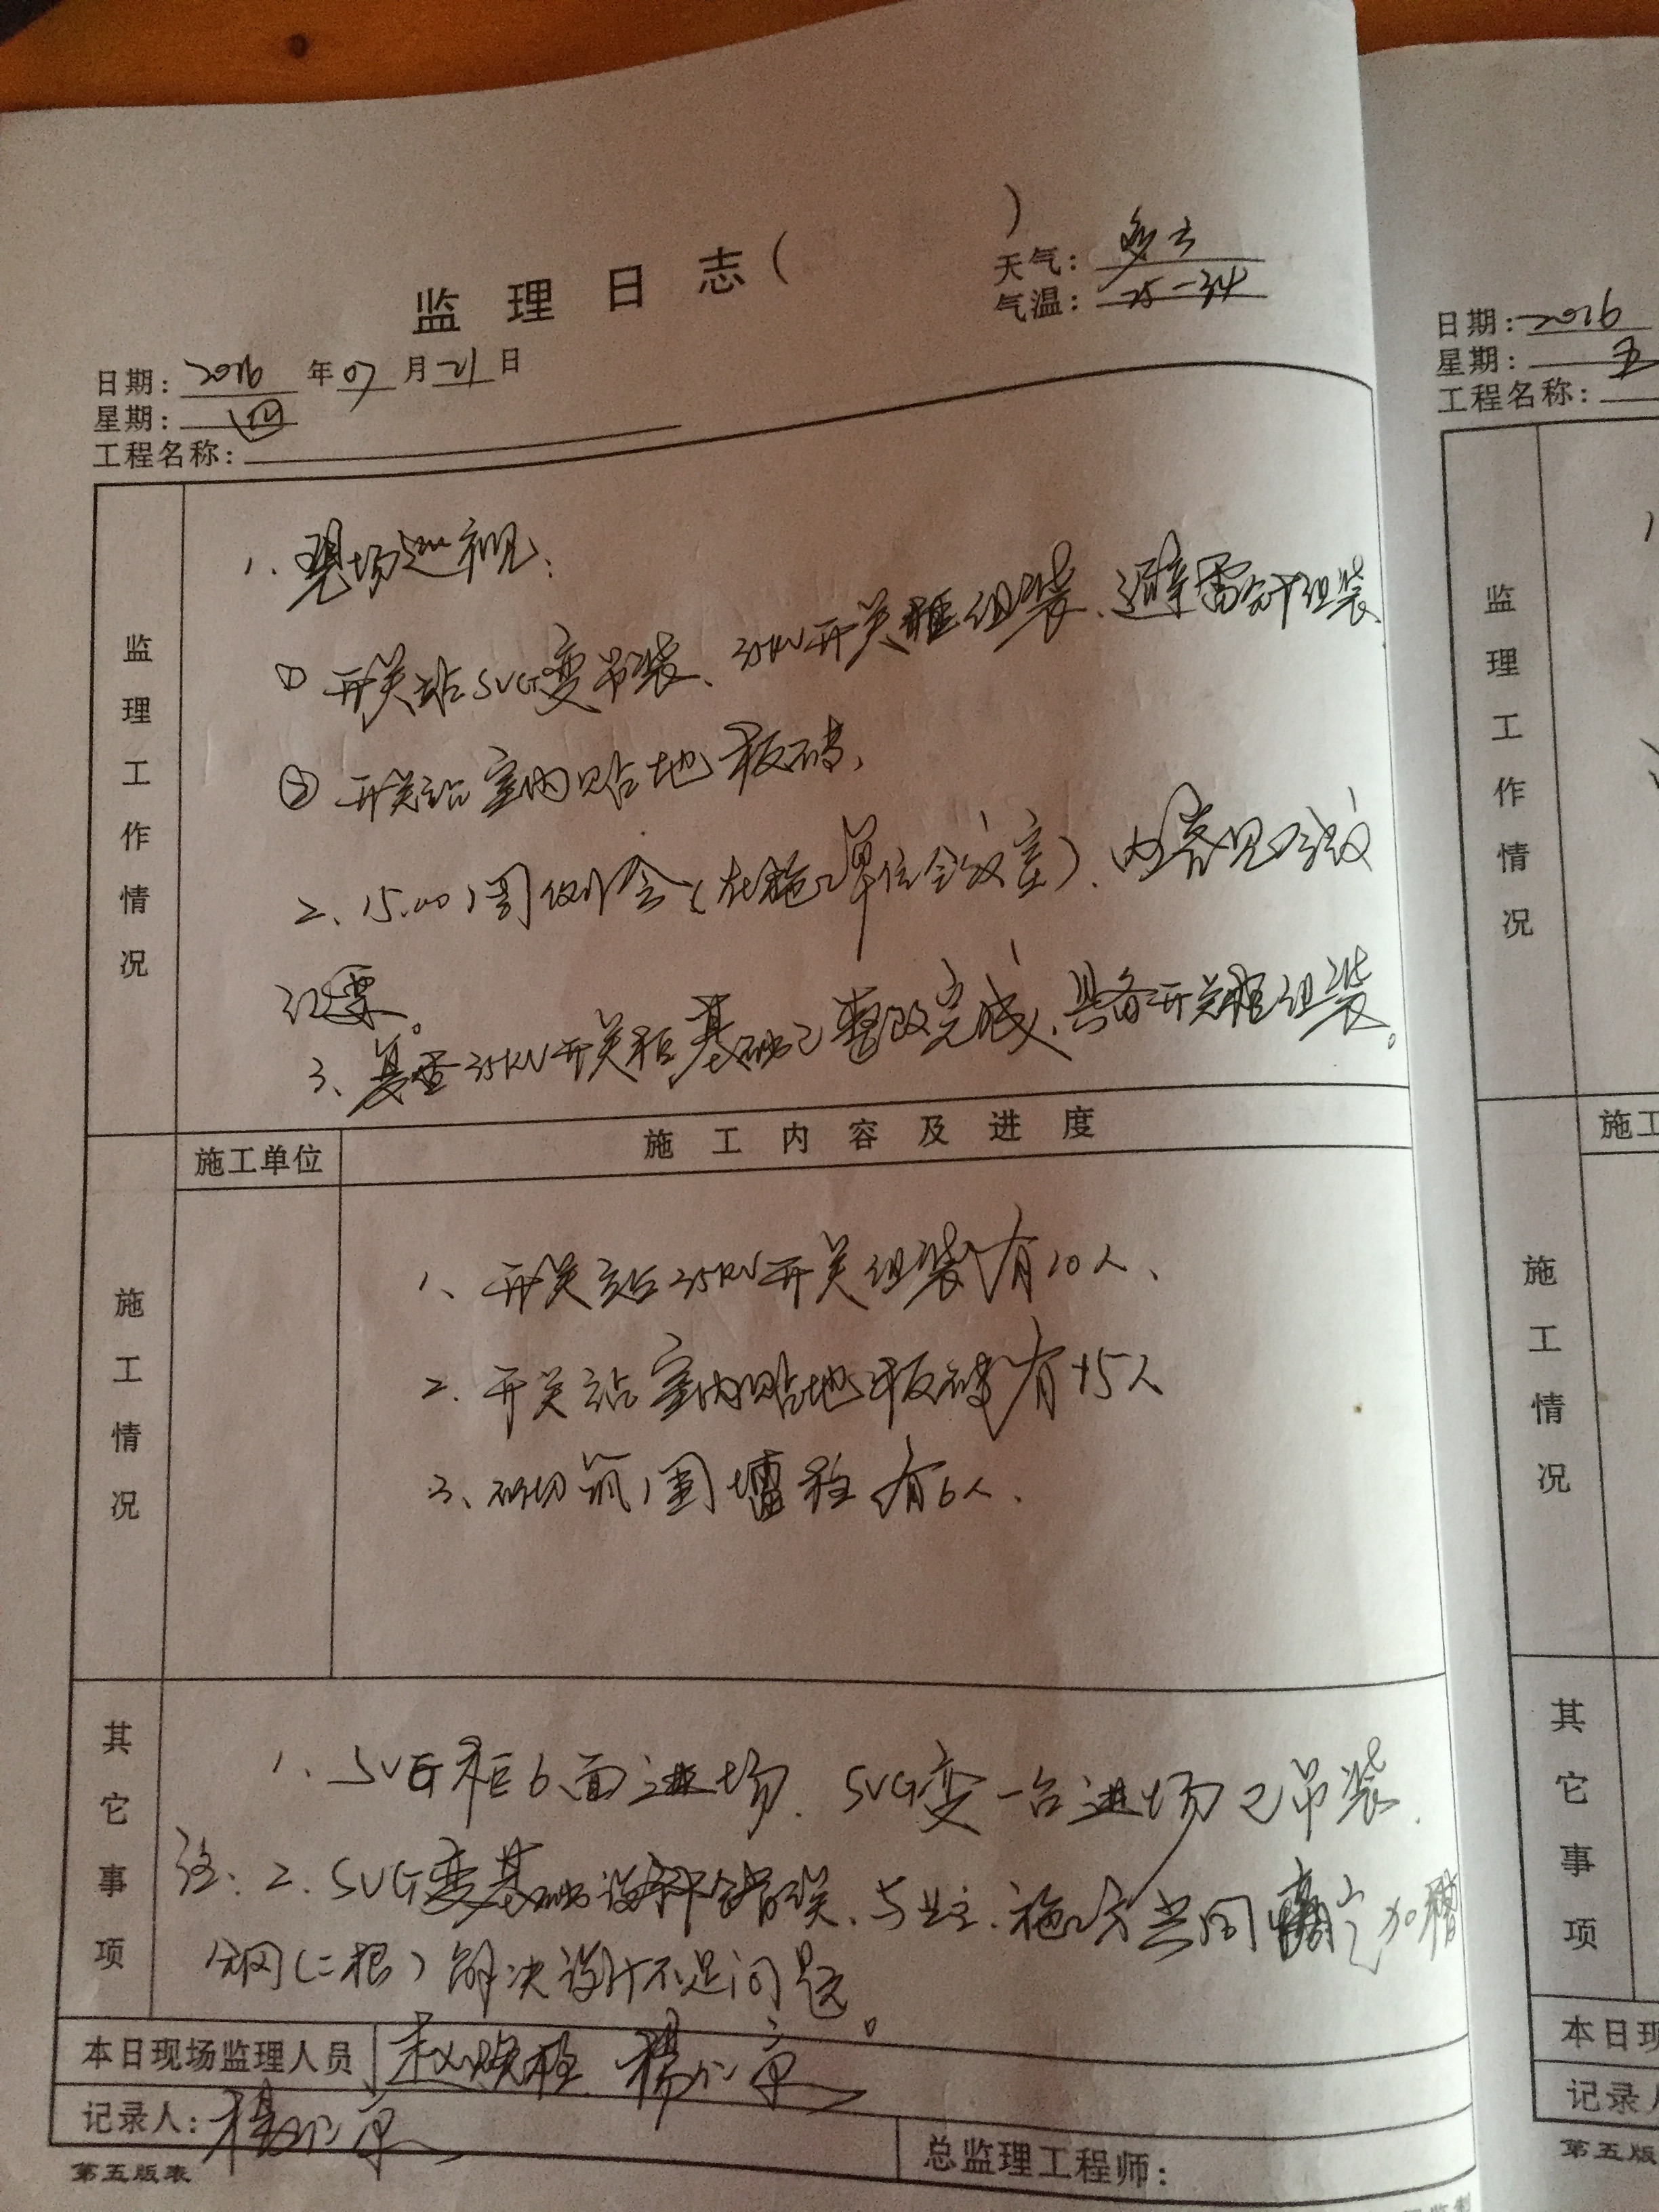 监理日志( )
天气：多云
气温：25-34
日期：2016年07月21日
星期：四
工程名称：
监理工作情况
1、现场巡视：
① 开关站SVG变吊装、35KV开关柜组装、避雷针组装
② 开关站室内贴地板砖、
2、15:00周例会（在施工单位会议室）、内容见会议
纪要。
3、复查35KV开关柜基础已整改完成、具备开关柜组装。
施工单位 施工内容及进度
施工情况
1、开关站35KV开关组装有10人、
2、开关站室内贴地板砖有15人
3、砌筑围墙 有6人、
其它事项
1、SVG柜6面进场、SVG变一台进场已吊装.
注：2、SVG变基础设计错误、与业主、施工方共同确定加槽
钢（二根）解决设计不足问题。
本日现场监理人员
记录人：
总监理工程师：
第五版表
日期：2016
星期：五
工程名称：
监理工作情况
施工
施工情况
其它事项
本日现
记录人
第五版